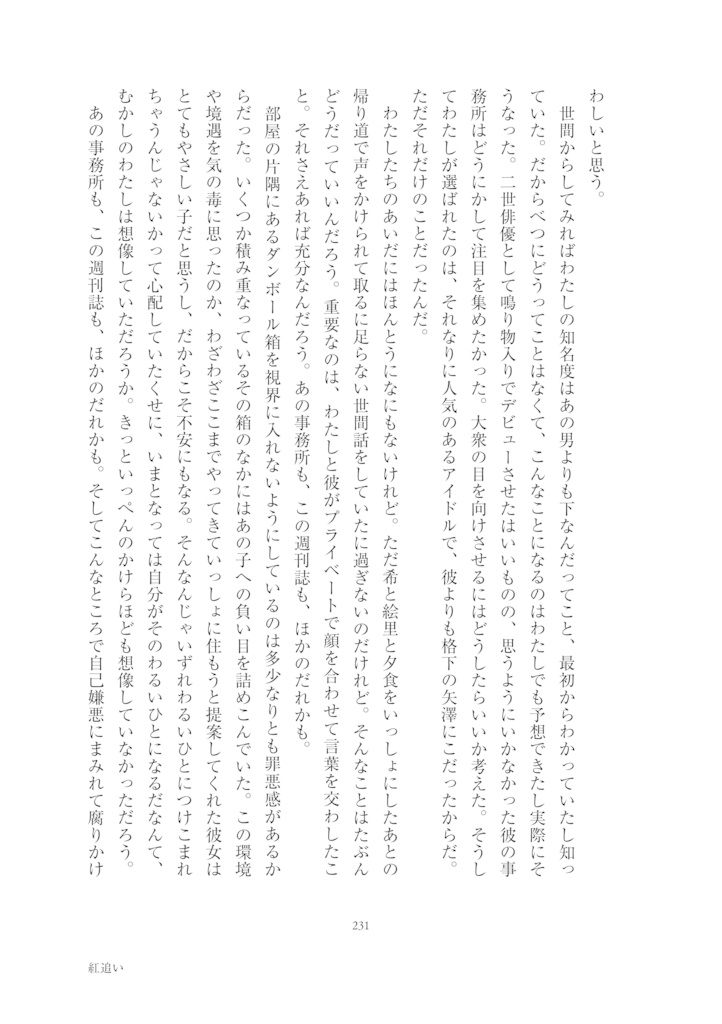 わしいと思う。
　世間からしてみればわたしの知名度はあの男よりも下なんだってこと、最初からわかっていたし知っ
ていた。だからべつにどうってことはなくて、こんなことになるのはわたしでも予想できたし実際にそ
うなった。二世俳優として鳴り物入りでデビューさせたはいいものの、思うようにいかなかった彼の事
務所はどうにかして注目を集めたかった。大衆の目を向けさせるにはどうしたらいいか考えた。そうし
てわたしが選ばれたのは、それなりに人気のあるアイドルで、彼よりも格下の矢澤にこだったからだ。
ただそれだけのことだったんだ。
　わたしたちのあいだにはほんとうになにもないけれど。ただ希と絵里と夕食をいっしょにしたあとの
帰り道で声をかけられて取るに足らない世間話をしていたに過ぎないのだけれど。そんなことはたぶん
どうだっていいんだろう。重要なのは、わたしと彼がプライベートで顔を合わせて言葉を交わしたこ
と。それさえあれば充分なんだろう。あの事務所も、この週刊誌も、ほかのだれかも。
　部屋の片隅にあるダンボール箱を視界に入れないようにしているのは多少なりとも罪悪感があるか
らだった。いくつか積み重なっているその箱のなかにはあの子への負い目を詰めこんでいた。この環境
や境遇を気の毒に思ったのか、わざわざここまでやってきていっしょに住もうと提案してくれた彼女は
とてもやさしい子だと思うし、だからこそ不安にもなる。そんなんじゃいずれわるいひとにつけこまれ
ちゃうんじゃないかって心配していたくせに、いまとなっては自分がそのわるいひとになるだなんて、
むかしのわたしは想像していただろうか。きっといっぺんのかけらほども想像していなかっただろう。
　あの事務所も、この週刊誌も、ほかのだれかも。そしてこんなところで自己嫌悪にまみれて腐りかけ
231
紅追い